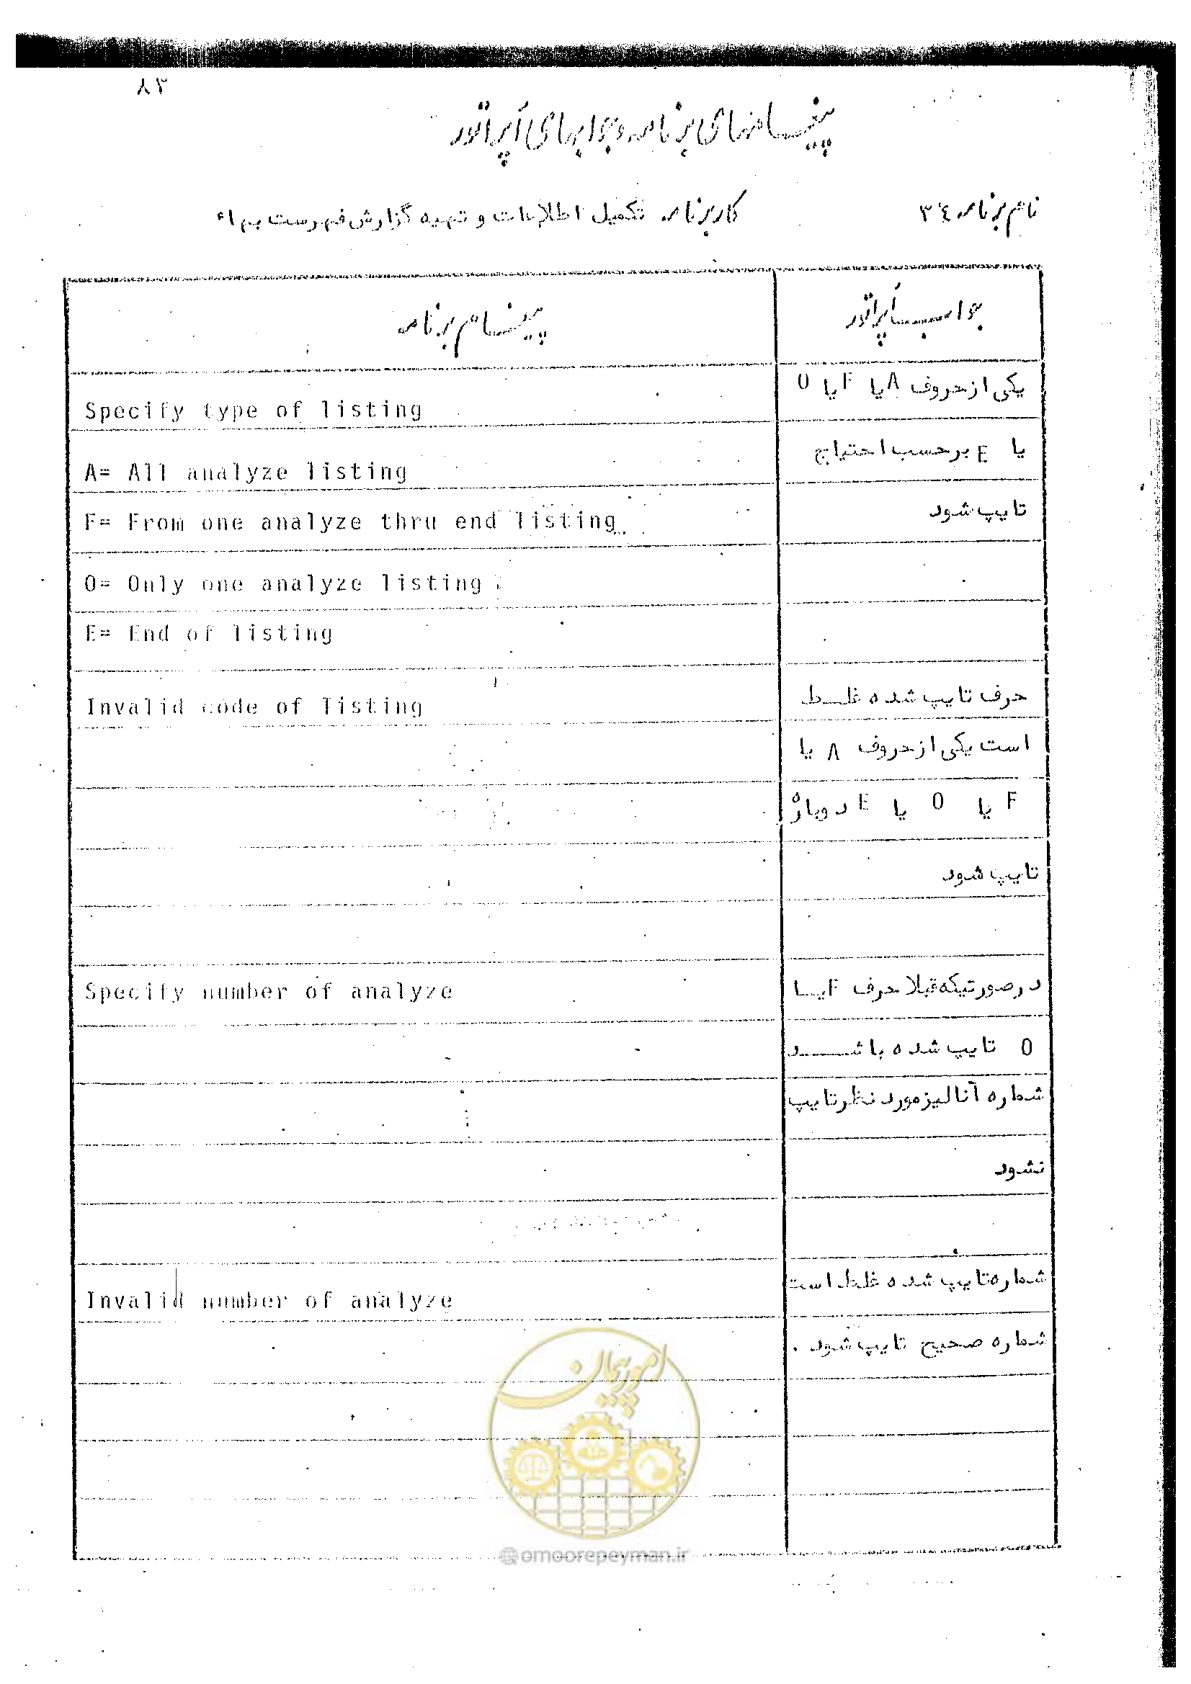 ۸۳
پیغامهای برنامه و جوابهای اُپراتور
نام برنامه ۳۴ کاربرنامه تکمیل اطلاعات و تهیه گزارش فهرست بهاء
جواب اُپراتور پیغام برنامه
یکی از حروف A یا F یا O
Specify type of listing
یا E بر حسب احتیاج
A= All analyze listing
تایپ شود
F= From one analyze thru end listing
O= Only one analyze listing
E= End of listing
حرف تایپ شده غلط
Invalid code of listing
است یکی از حروف A یا
F یا O یا E دوباره
تایپ شود
در صورتیکه قبلا حرف F یا
Specify number of analyze
O تایپ شده باشد
شماره آنالیز مورد نظر تایپ
نشود
شماره تایپ شده غلط است
Invalid number of analyze
شماره صحیح تایپ شود .
امور پیمان
@omoorepeyman.ir